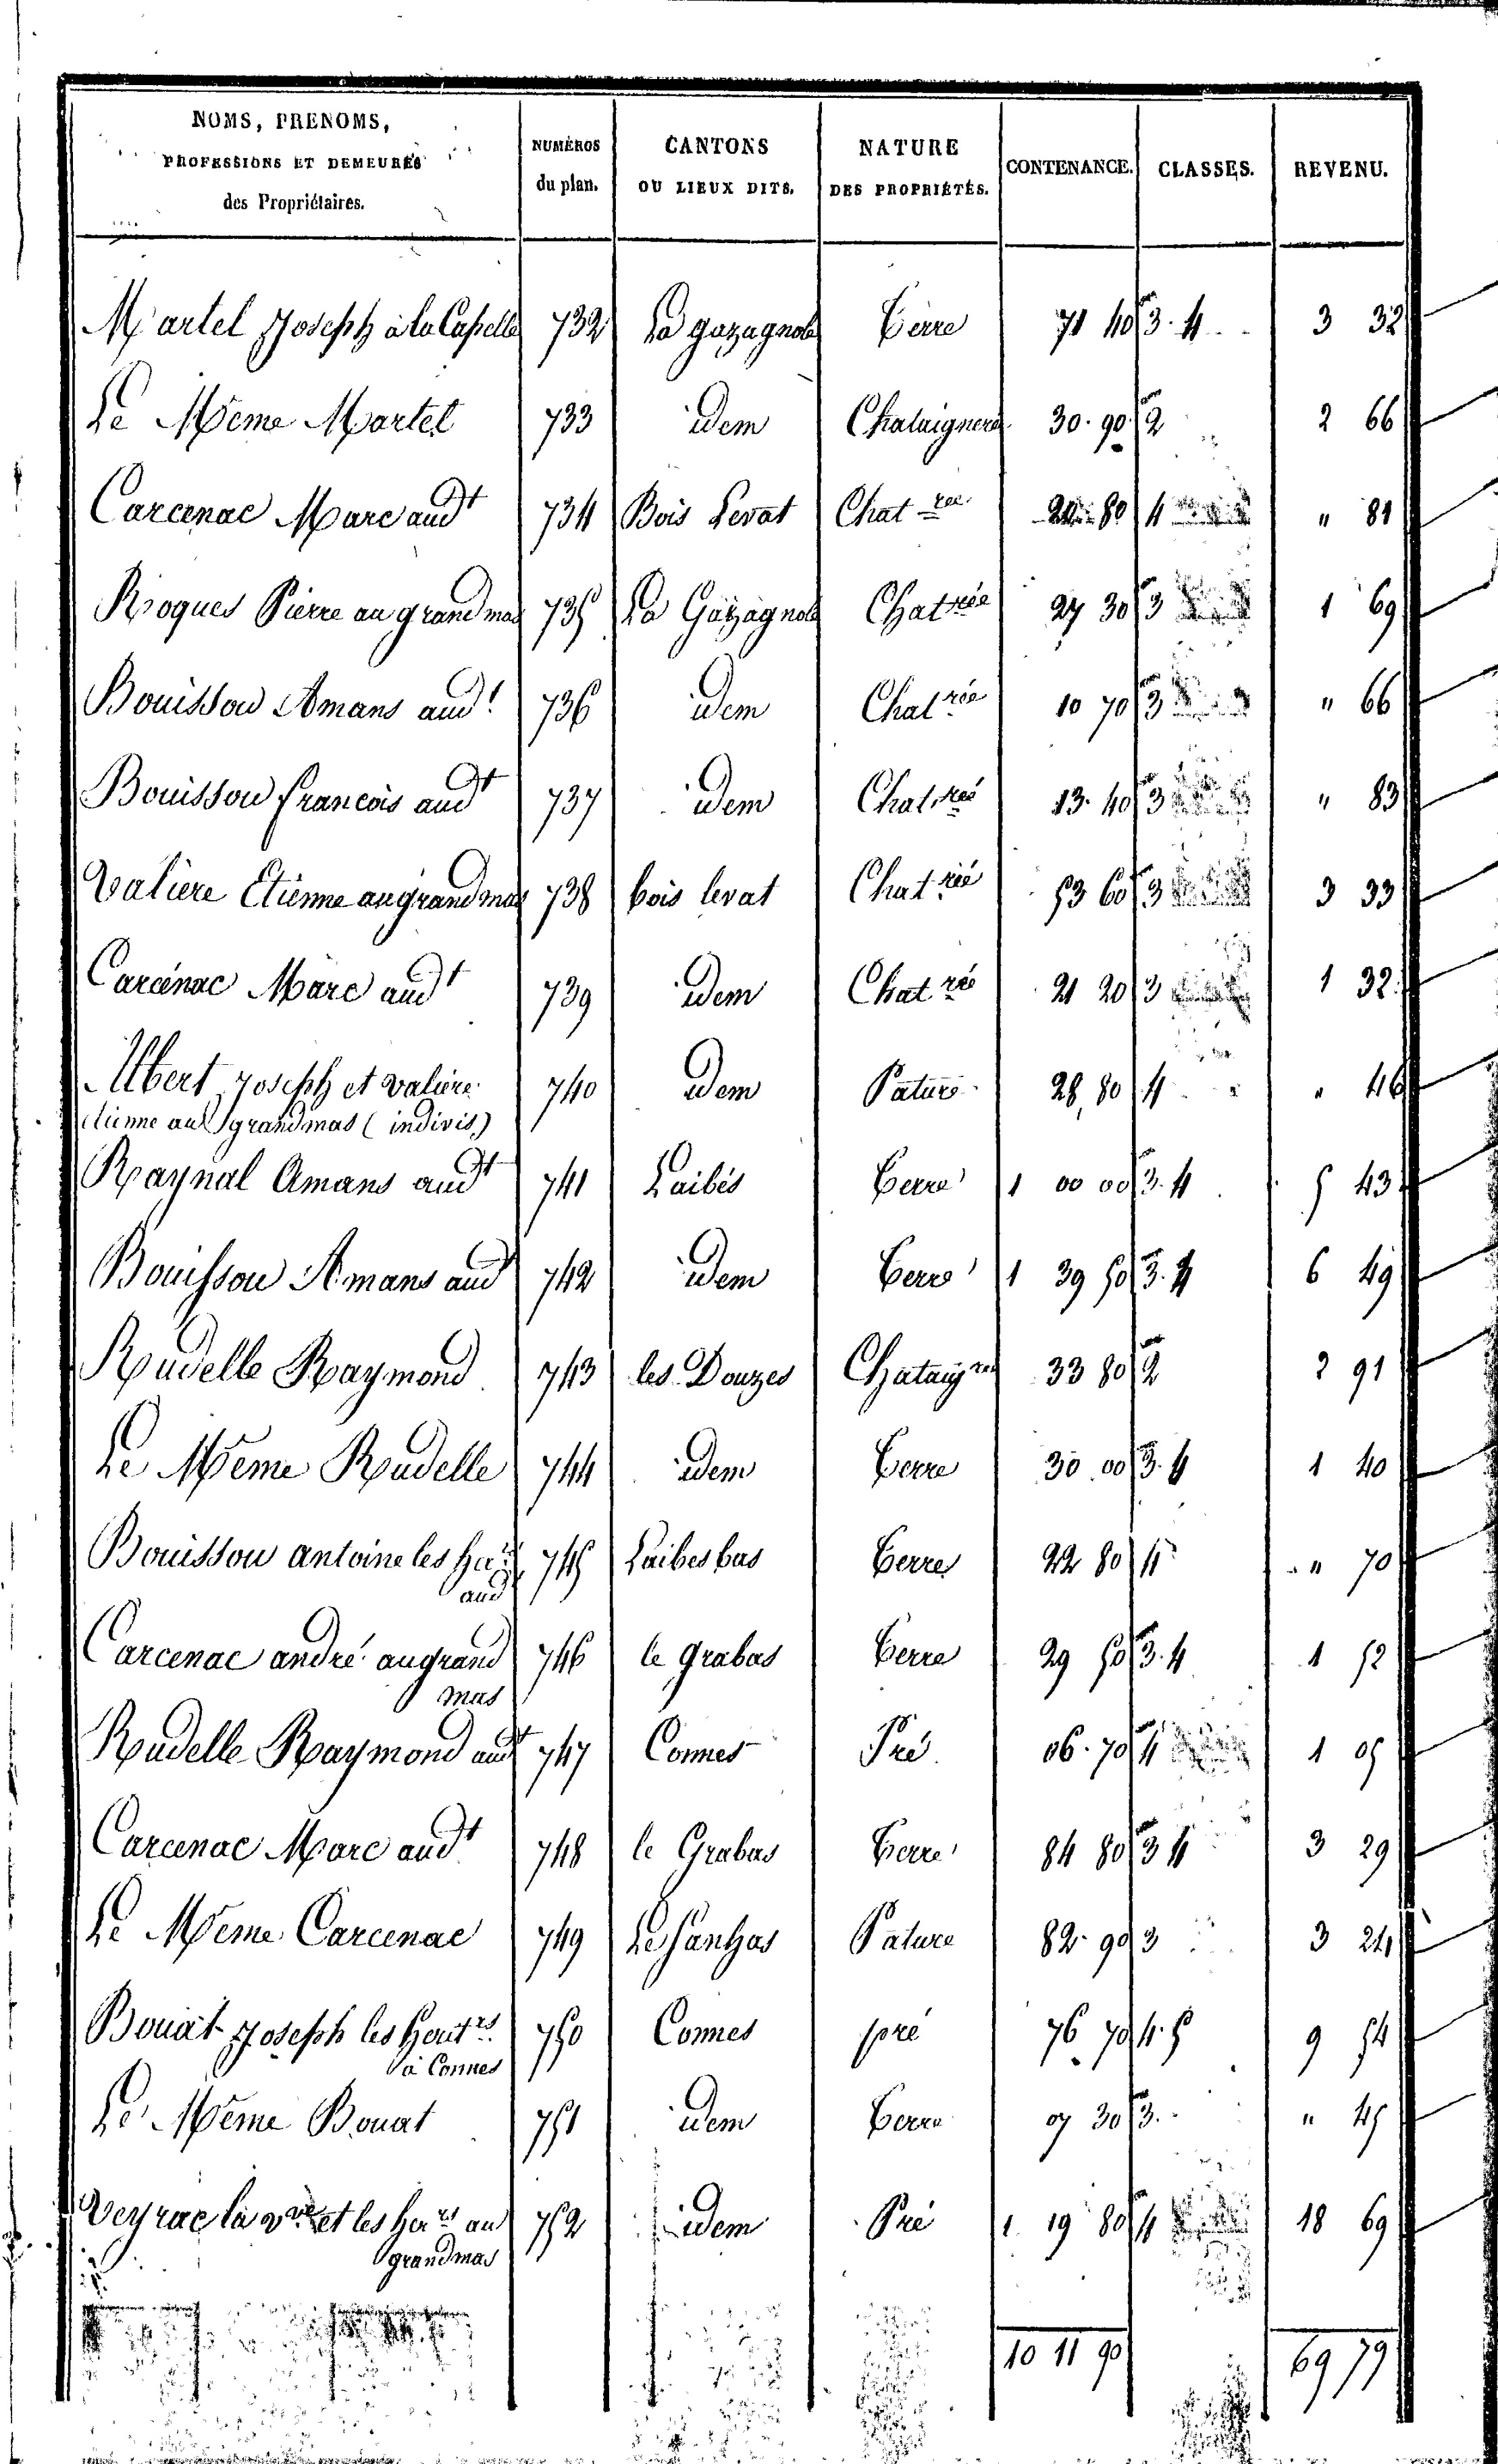 NOMS, PRENOMS,
PROFESSIONS ET DEMEURES
des Propriétaires.
NUMÉROS
du plan.
CANTONS
OU LIEUX DITS.
NATURE
DES PROPRIÉTÉS.
CONTENANCE.
CLASSES.
REVENU.
Martel Joseph à la Capelle 732 La gazagnole Terre 71 40 3. 4 3 32
Le Même Martel 733 idem Chataigneraie 30. 90 2 2 66
Carcenac Marc audt 734 Bois Levat Chat rée 80 4 " 81
Roques Pierre au grand mas 735 La Gazagnole Chat rée 27 30 3 1 69
Bouissou Amans audt 736 idem Chat rée 10 70 3 " 66
Bouissou francois audt 737 idem Chat rée 13. 40 3 " 83
Valiere Etienne au grand mas 738 bois levat Chat rée 53 60 3 3 33
Carcenac Marc audt 739 idem Chat rée 21 20 3 1 32
Albert Joseph et valiere 740 idem Pature 28, 80 4 " 46
etienne au grandmas (indivis)
Raynal Amans audt 741 Laibés Terre 1 00 00 3. 4 5 43
Bouissou Amans audt 742 idem Terre 1 39 50 3. 4 6 49
Rudelle Raymond 743 les Douzes Chataigrée 33 80 2 2 91
Le Même Rudelle 744 idem Terre 30 00 3. 4 1 40
Bouissou antoine les hers 745 Laibes bas Terre 22 80 4 " 70
audt
Carcenac andré au grand 746 le grabas Terre 29 50 3. 4 1 52
mas
Rudelle Raymond audt 747 Connes Pré 06. 70 4 1 05
Carcenac Marc audt 748 le Grabas Terre 84 80 3 4 3 29
Le Même Carcenac 749 Le Sanhas Pature 82. 90 3 3 24
Bouat Joseph les herits 750 Connes pré 76 70 4. 5 9 54
à Connes
Le Même Bouat 751 idem Terre 07 30 3. " 45
Veyrac la vve et les hers au 752 idem Pré 1 19 80 4 18 69
grandmas
10 11 90 69 79